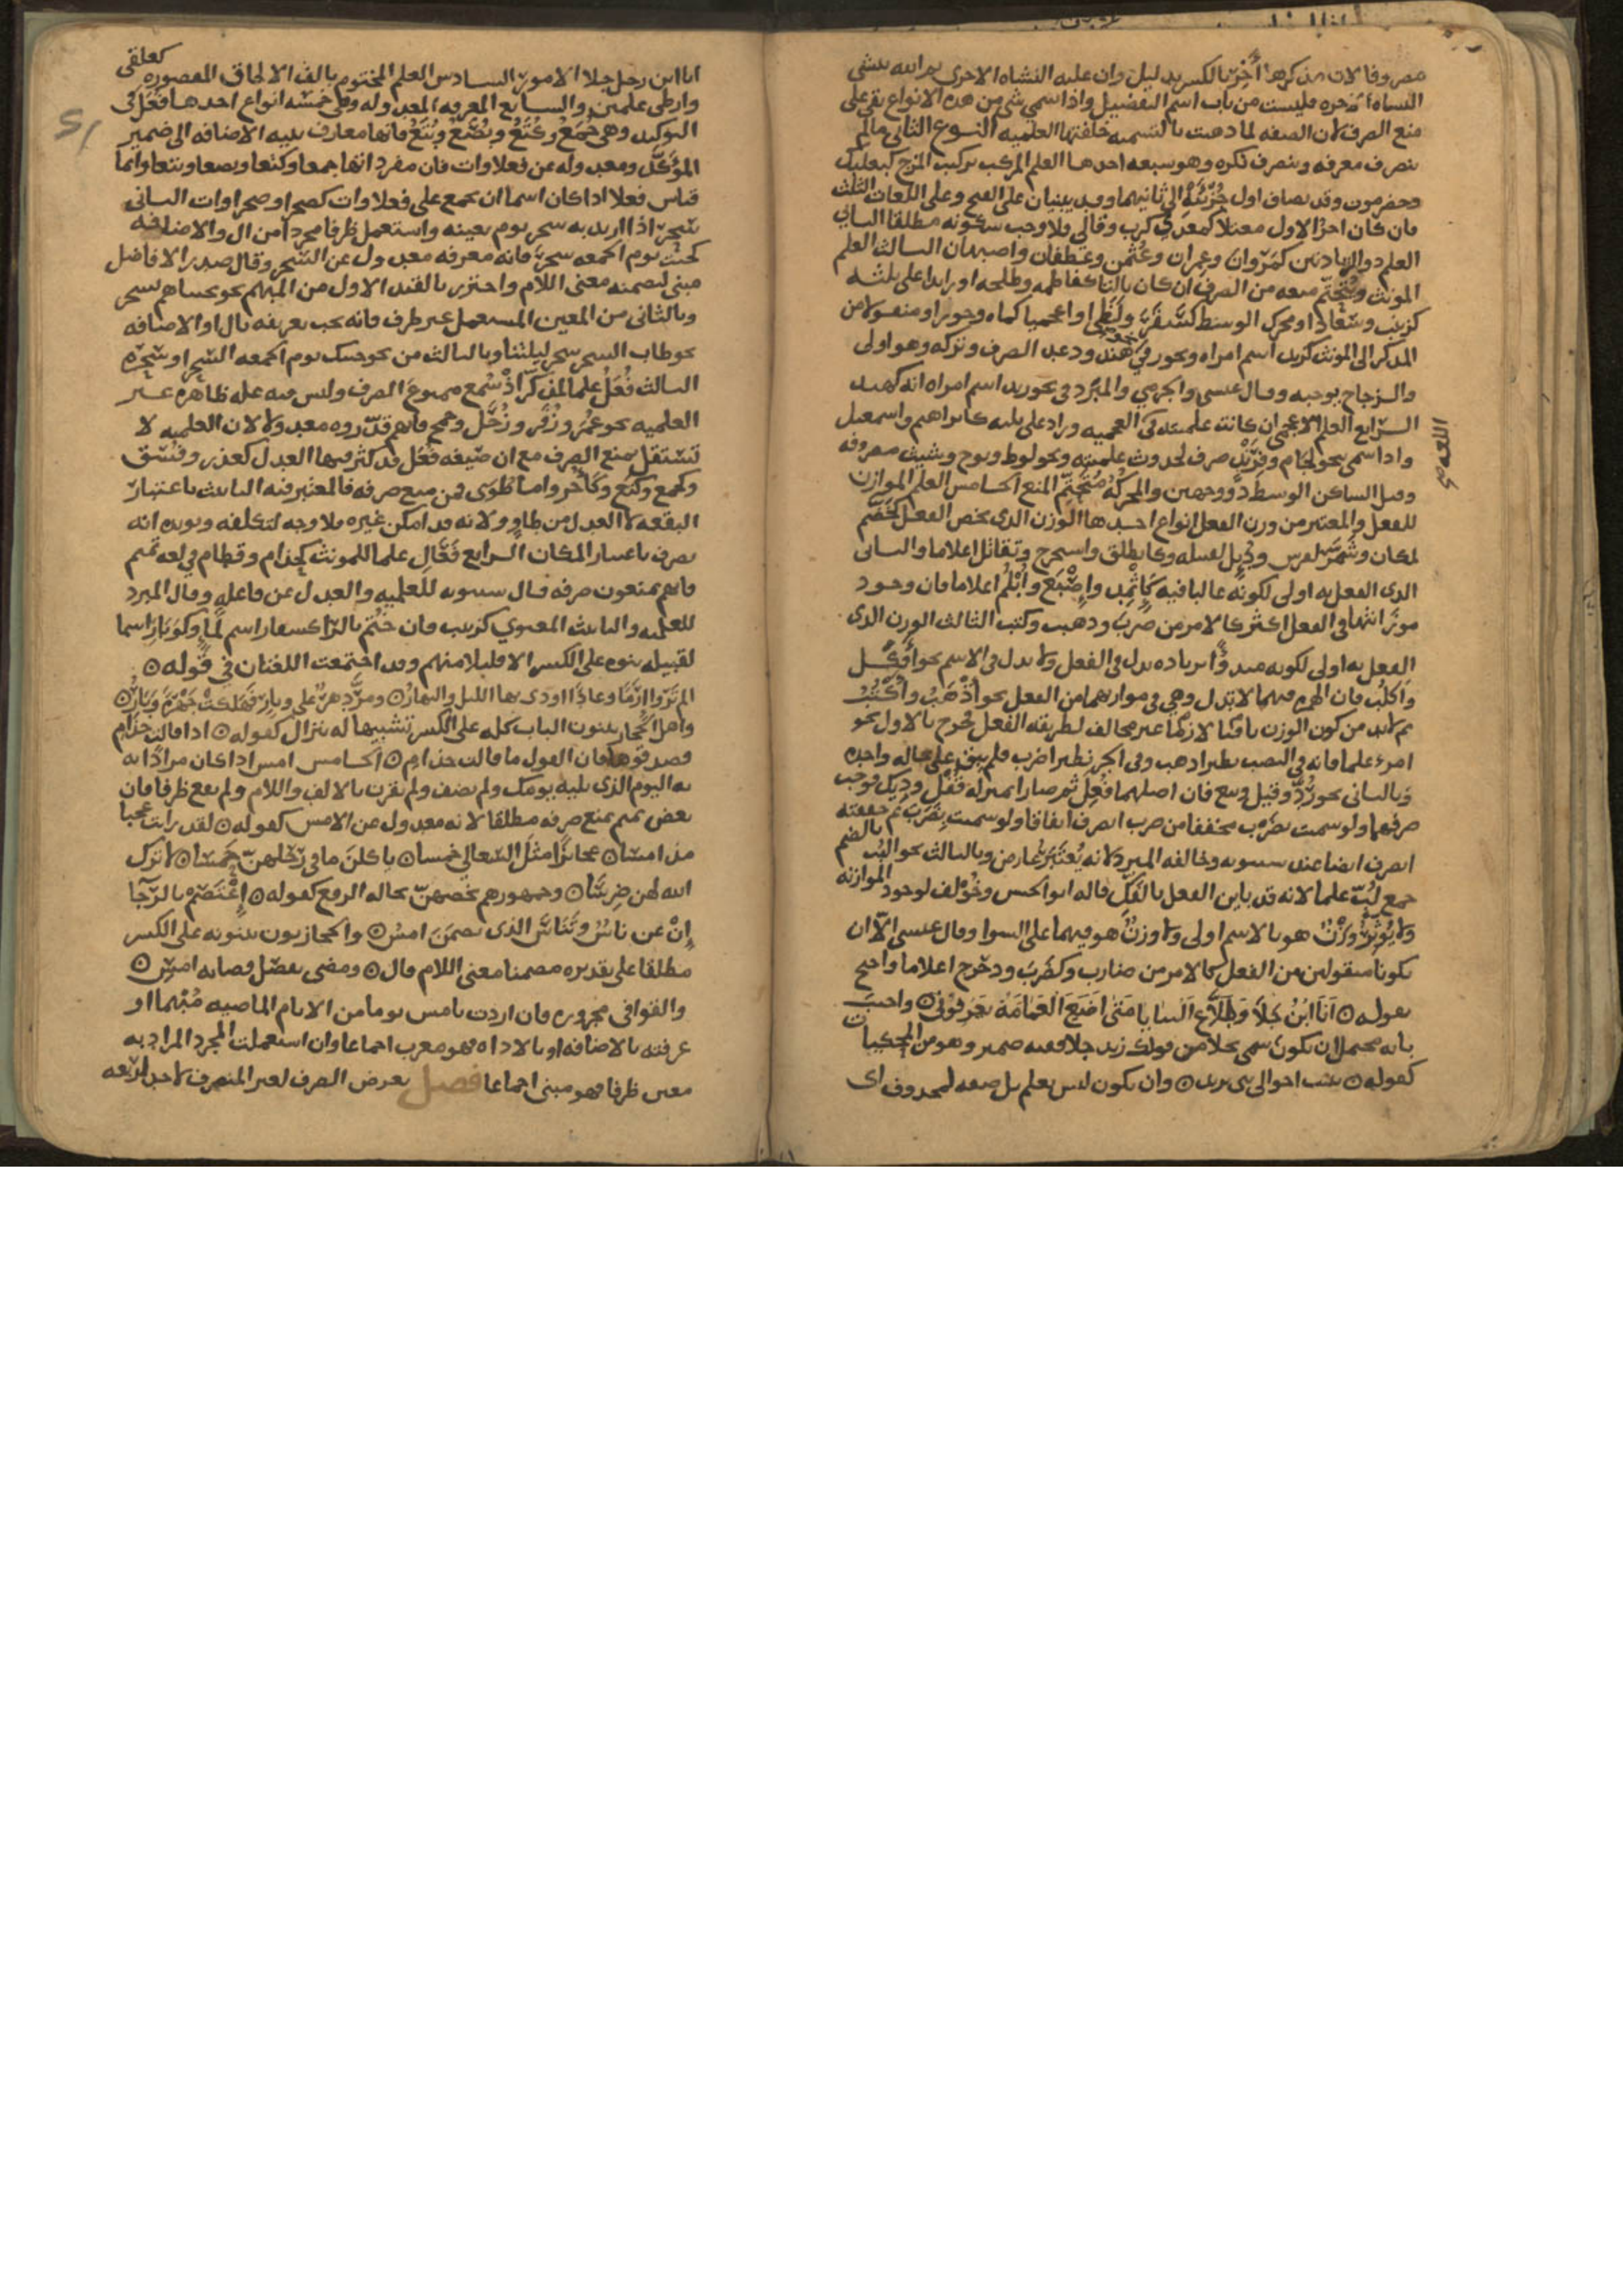 مصروفا لان مذكرها آخِر بالكسر بدليل وان عليه النشاه الاخرى ثم الله ينشى
النشاه الاخره فليست من باب اسم التفضيل واذا سمي شي من هده الانواع بقي على
منع الصرف لان الصفه لما دهبت بالتسميه خلفتها العلميه النوع الثاني مالا
ينصرف معرفه وينصرف نكره وهو سبعه احدها العلم المركب تركيب المزج كبعلبك
وحضرموت وقد يضاف اول جُزْئَيْهِ الى ثانيهما وقد يبنيان على الفتح وعلى اللغات الثلث
فان كان اخر الاول معتلا كمعدي كرب وقالي قلا وجب سكونه مطلقا الثاني
العلم ذو الزيادتين كمَرْوان وعمران وعُثمن وغطفان واصبهان الثالث العلم
المونث ويتحتم منعه من الصرف ان كان بالتا كفاطمه وطلحه او زايدا على ثلثه
كزينب وسُعَاد او محرك الوسط كسَقَرَ ولَظَى او اعجميا كماه وجور او منقولا من
المذكر الى المونث كزيد اسم امراه ويجوز في نحو هند ودعد الصرف وتركه وهو اولى
والزجاج يوجبه وقال عيسى والجرمي والمبرّد في نحو زيد اسم امراه انه كهند
الرّابع العلم الاعجمي ان كانت علميته في العجميه وزاد على ثلثه كابراهيم واسمعيل
واذا سمي بنحو لجام وفِرِنْد صرف لحدوث علميته ونحو لوط ونوح وشيث مصروفه
وقيل الساكن الوسط ذو وجهين والمحركُهُ مُتَحَتِّم المنع الخامس العلم الموازن
للفعل والمعتبر من وزن الفعل انواع احدها الوزن الذي يخص الفعل كخَضَّم
لمكان وشَمَّرَ لفرس ودُيِل لقبيله وكانطلق واستخرج وتقاتل اعلاما والثاني
الذى الفعل به اولى لكونه غالبا فيه كإثْمِد واِصْبَع وأُبْلُم اعلاما فان وجود
موزَانتها في الفعل اكثر كالامر من ضرب ودهب وكتب الثالث الوزن الذى
الفعل به اولى لكونه مبدوًّا بزياده تدل في الفعل ولا تدل في الاسم نحو أَفْكَل
وأكلُب فان الهمزه فيهما لا تدل وهي في موازنهما من الفعل نحو أذْهَبُ وأكْتُبُ
ثم لابد من كون الوزن باقيا لازمًا غير مخالف لطريقه الفعل فخرج بالاول نحو
امرء علما فانه في النصب نظير اذهب وفي الجر نظير اضرب فلم يبق على حاله واحده
وبالثاني نحو رُدَّ وقيل وبيع فان اصلهما فُعِل ثم صارا بمنزله قُفْل ودِيك فوجب
صرفهما ولو سميت بضُرْب مخففا من ضرب انصرف اتفاقا ولو سميت بضُرِب ثم خففته
انصرف ايضا عند سيبويه وخالفه المبرد لانه تغيير عارض وبالثالث نحو ألبُب بالضم
جمع لُبّ علما لانه قد باين الفعل بالفَكّ قاله ابو الحسن وخُولف لوجود الموازنه
ولا يُؤثِّرُ وَزْنٌ هو بالاسم اولى ولا وزنٌ هو فيهما على السوا وقال عيسى الّا ان
يكونا منقولين من الفعل كالامر من ضارب وكضَرَبَ ودحرج اعلاما واحتج
بقوله ٥ اَنَا ابْنُ جَلَا وَطَلَّاعِ الثنايا مَتَى اَضَعِ العَمَامَةَ تَعْرِفُونِي ٥ واجيب
بانه يحتمل ان يكون سمي بجلا من قولك زيد جلا ففيه ضمير وهو من المحكيات
كقوله ٥ نبئت اخوالي بني يزيد ٥ وان يكون ليس بعلم بل صفه لمحذوف اى
انا ابن رجل جلا الامور السادس العلم المختوم بالف الالحاق المقصوره كعلقى
وارطى علمين والسابع المعرفه المعدوله وهي خمسه انواع احدها فُعَل في
التوكيد وهي جُمَعُ وكُتَعُ وبُصَعُ وبُتَعُ فانها معارف بنيه الاضافه الى ضمير
المؤكَّد ومعدوله عن فعلاوات فان مفرداتها جمعا وكتعا وبصعا وبتعا وانما
قياس فعلا اذا كان اسما ان يجمع على فعلاوات كصحرا وصحراوات الثاني
سَحَر اذا اريد به سحر يوم بعينه واستعمل ظرفا مجردا من ال والاضافه
كجئت يوم الجمعه سحرَ فانه معرفه معدول عن السّحر وقال صدر الافاضل
مبني لتضمنه معنى اللام واحترز بالقيد الاول من المبهم نحو نجيناهم بسحر
وبالثاني من المعين المستعمل غير ظرف فانه يجب تعريفه بال او الاضافه
نحو طاب السحر سحر ليلتنا وبالثالث من نحو جيتك يوم الجمعه السَّحر او سَحَرَه
الثالث فُعَلُ علما لمذكّر اذ سُمع ممنوع الصرف وليس فيه عله ظاهره غير
العلميه نحو عُمَر وزُفَر وزُحَل وجمح فانهم قدّروه معدولا لان العلميه لا
تستقل بمنع الصرف مع ان صيغه فُعَل قد كثر فيها العدل كغدر وفُسَق
وكجمع وكتع وكأخر واما طُوَى فمن منع صرفه فالمعتبر فيه التانيث باعتبار
البقعه لا العدل عن طاوٍ ولانه قد امكن غيره فلا وجه لتكلفه ويويده انه
يصرف باعتبار المكان الرابع فَعَالِ علما للمونث كحذام وقطام في لغه تميم
فانهم يمنعون صرفه قال سيبويه للعلميه والعدل عن فاعله وقال المبرد
للعلميه والتانيث المعنوي كزينب فان خُتُم بالرّا كسفار اسم لمَاءٍ وكوَبَارِ اسما
لقبيله بنوه على الكسر الا قليلا منهم وقد اجتمعت اللغتان في قوله ٥
الم تَرَوا اِرَمًا وعادًا اودى بها الليل والنهارُ ٥ ومرَّ دهرٌ على وبارِ فَهَلَكَتْ جَهْرَةً وَبَارُ ٥
واهل الحجاز يبنون الباب كله على الكسر تشبيها له بنزال كقوله ٥ اذا قالت حذام
فصدقوها فان القول ما قالت حذامِ ٥ الخامس امس اذا كان مرادًا به
اليوم الذى يليه يومك ولم يضف ولم يقرن بالالف واللام ولم يقع ظرفا فان
بعض تميم يمنع صرفه مطلقا لانه معدول عن الامس كقوله ٥ لقد رايت عجبا
مذ امسَا ٥ عجائزًا مثل السَّعالي خمسا ٥ ياكلنَ ما في رَحْلهنّ همسًا ٥ لا ترك
الله لهن ضِرسَا ٥ وجمهورهم يخصهنّ بحاله الرفع كقوله ٥ اِعْتَصِم بالرَّجَا
اِنْ عن نَاسٌ وتَنَاسَ الذى تضمنَ امسُ ٥ والحجازيون يبنونه على الكسر
مطلقا على تقديره مضمنا معنى اللام قال ٥ ومضى بفضل قضايه امسِ ٥
والقوافى مجروره فان اردت بامس يوما من الايام الماضيه مُبْهما او
عرفته بالاضافه او بالاداه فهو معرب اجماعا وان استعملت المجرد المراد به
معين ظرفا فهو مبنى اجماعا فصل يعرض الصرف لغير المنصرف لاحد اربعه